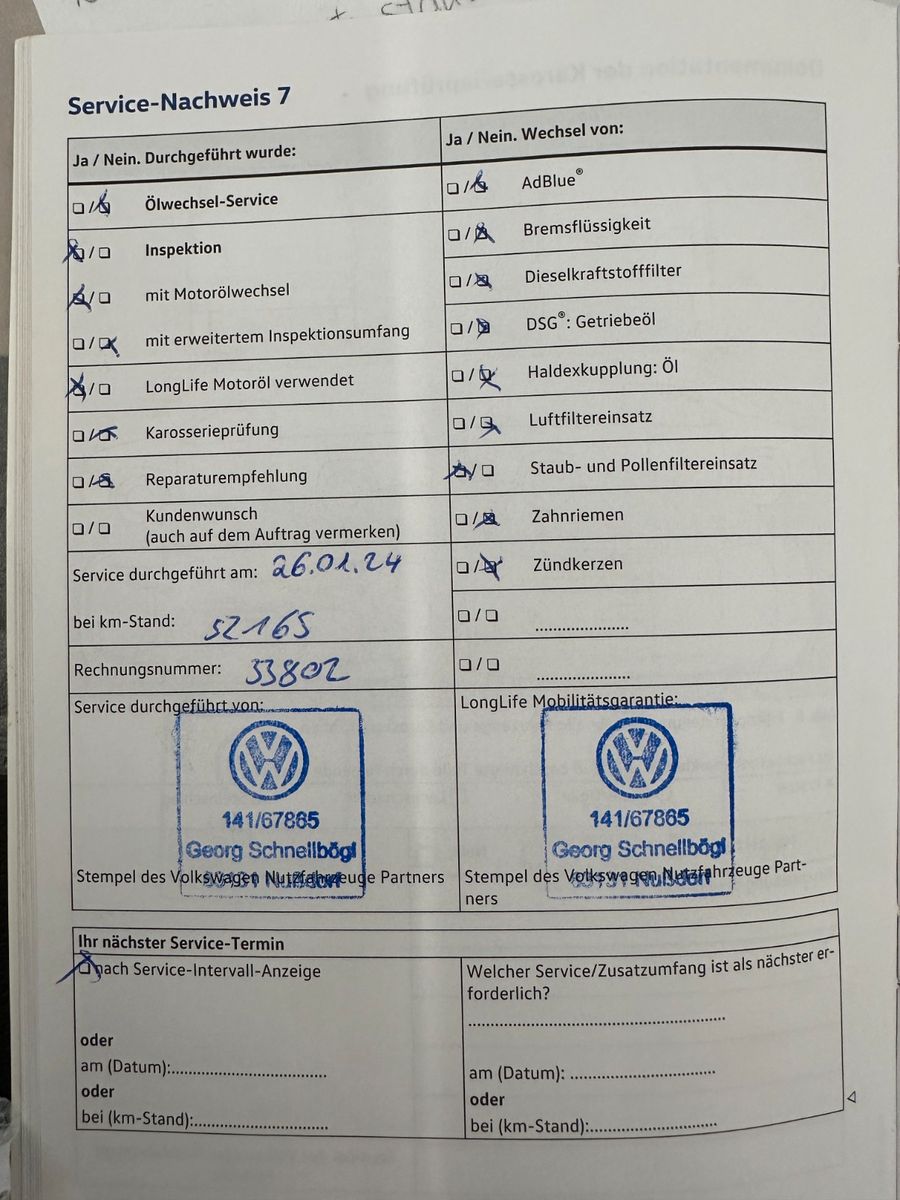 Service-Nachweis 7
Ja / Nein. Durchgeführt wurde:
Ölwechsel-Service
Inspektion
mit Motorölwechsel
mit erweitertem Inspektionsumfang
LongLife Motoröl verwendet
Karosserieprüfung
Reparaturempfehlung
Kundenwunsch
(auch auf dem Auftrag vermerken)
Service durchgeführt am: 26.01.24
bei km-Stand: 52165
Rechnungsnummer: 33802
Service durchgeführt von:
141/67865
Georg Schnellbögl
Nußdorf
Stempel des Volkswagen Nutzfahrzeuge Partners
Ja / Nein. Wechsel von:
AdBlue®
Bremsflüssigkeit
Dieselkraftstofffilter
DSG®: Getriebeöl
Haldexkupplung: Öl
Luftfiltereinsatz
Staub- und Pollenfiltereinsatz
Zahnriemen
Zündkerzen
LongLife Mobilitätsgarantie:
141/67865
Georg Schnellbögl
Nußdorf
Stempel des Volkswagen Nutzfahrzeuge Part-
ners
Ihr nächster Service-Termin
nach Service-Intervall-Anzeige
oder
am (Datum):
oder
bei (km-Stand):
Welcher Service/Zusatzumfang ist als nächster er-
forderlich?
am (Datum):
oder
bei (km-Stand):